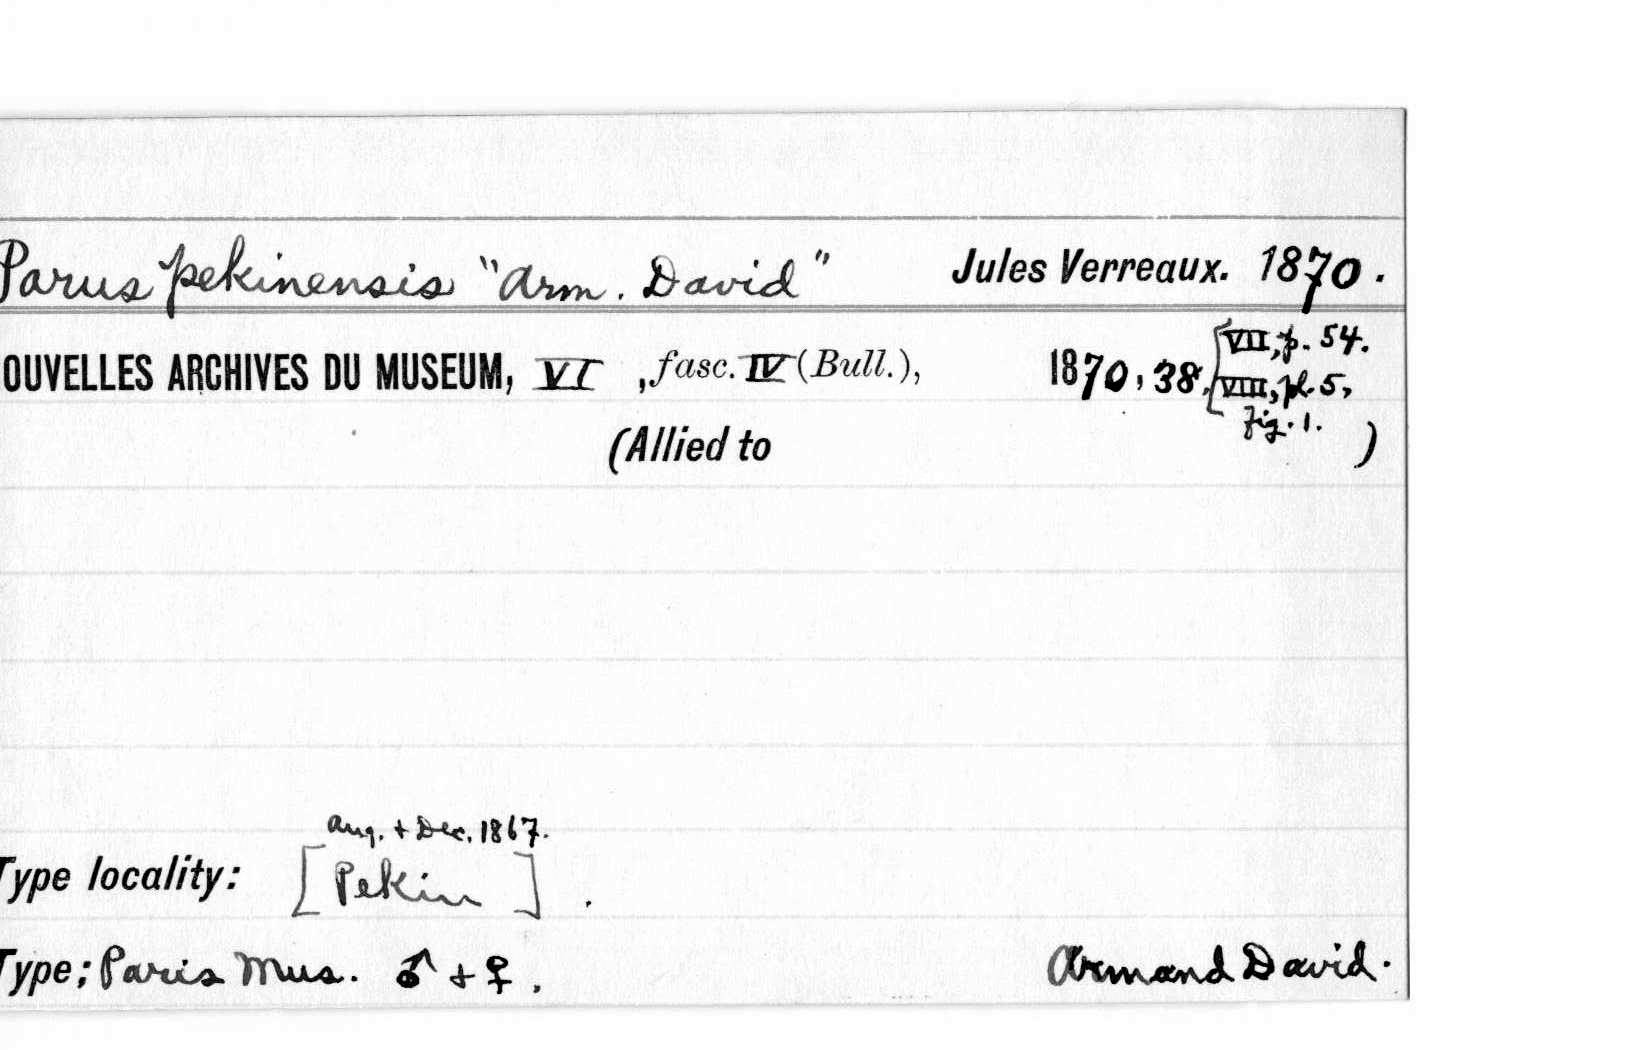 Parus pekinensis "Arm. David" Jules Verreaux. 1870.
OUVELLES ARCHIVES DU MUSEUM, VI, fasc. IV (Bull.), 1870, 38. [VII, p. 54.
VIII, pl. 5,
fig. 1.
(Allied to )
Aug. + Dec. 1867.
Type locality: [Pekin].
Type; Paris Mus. ♂ + ♀. Armand David.